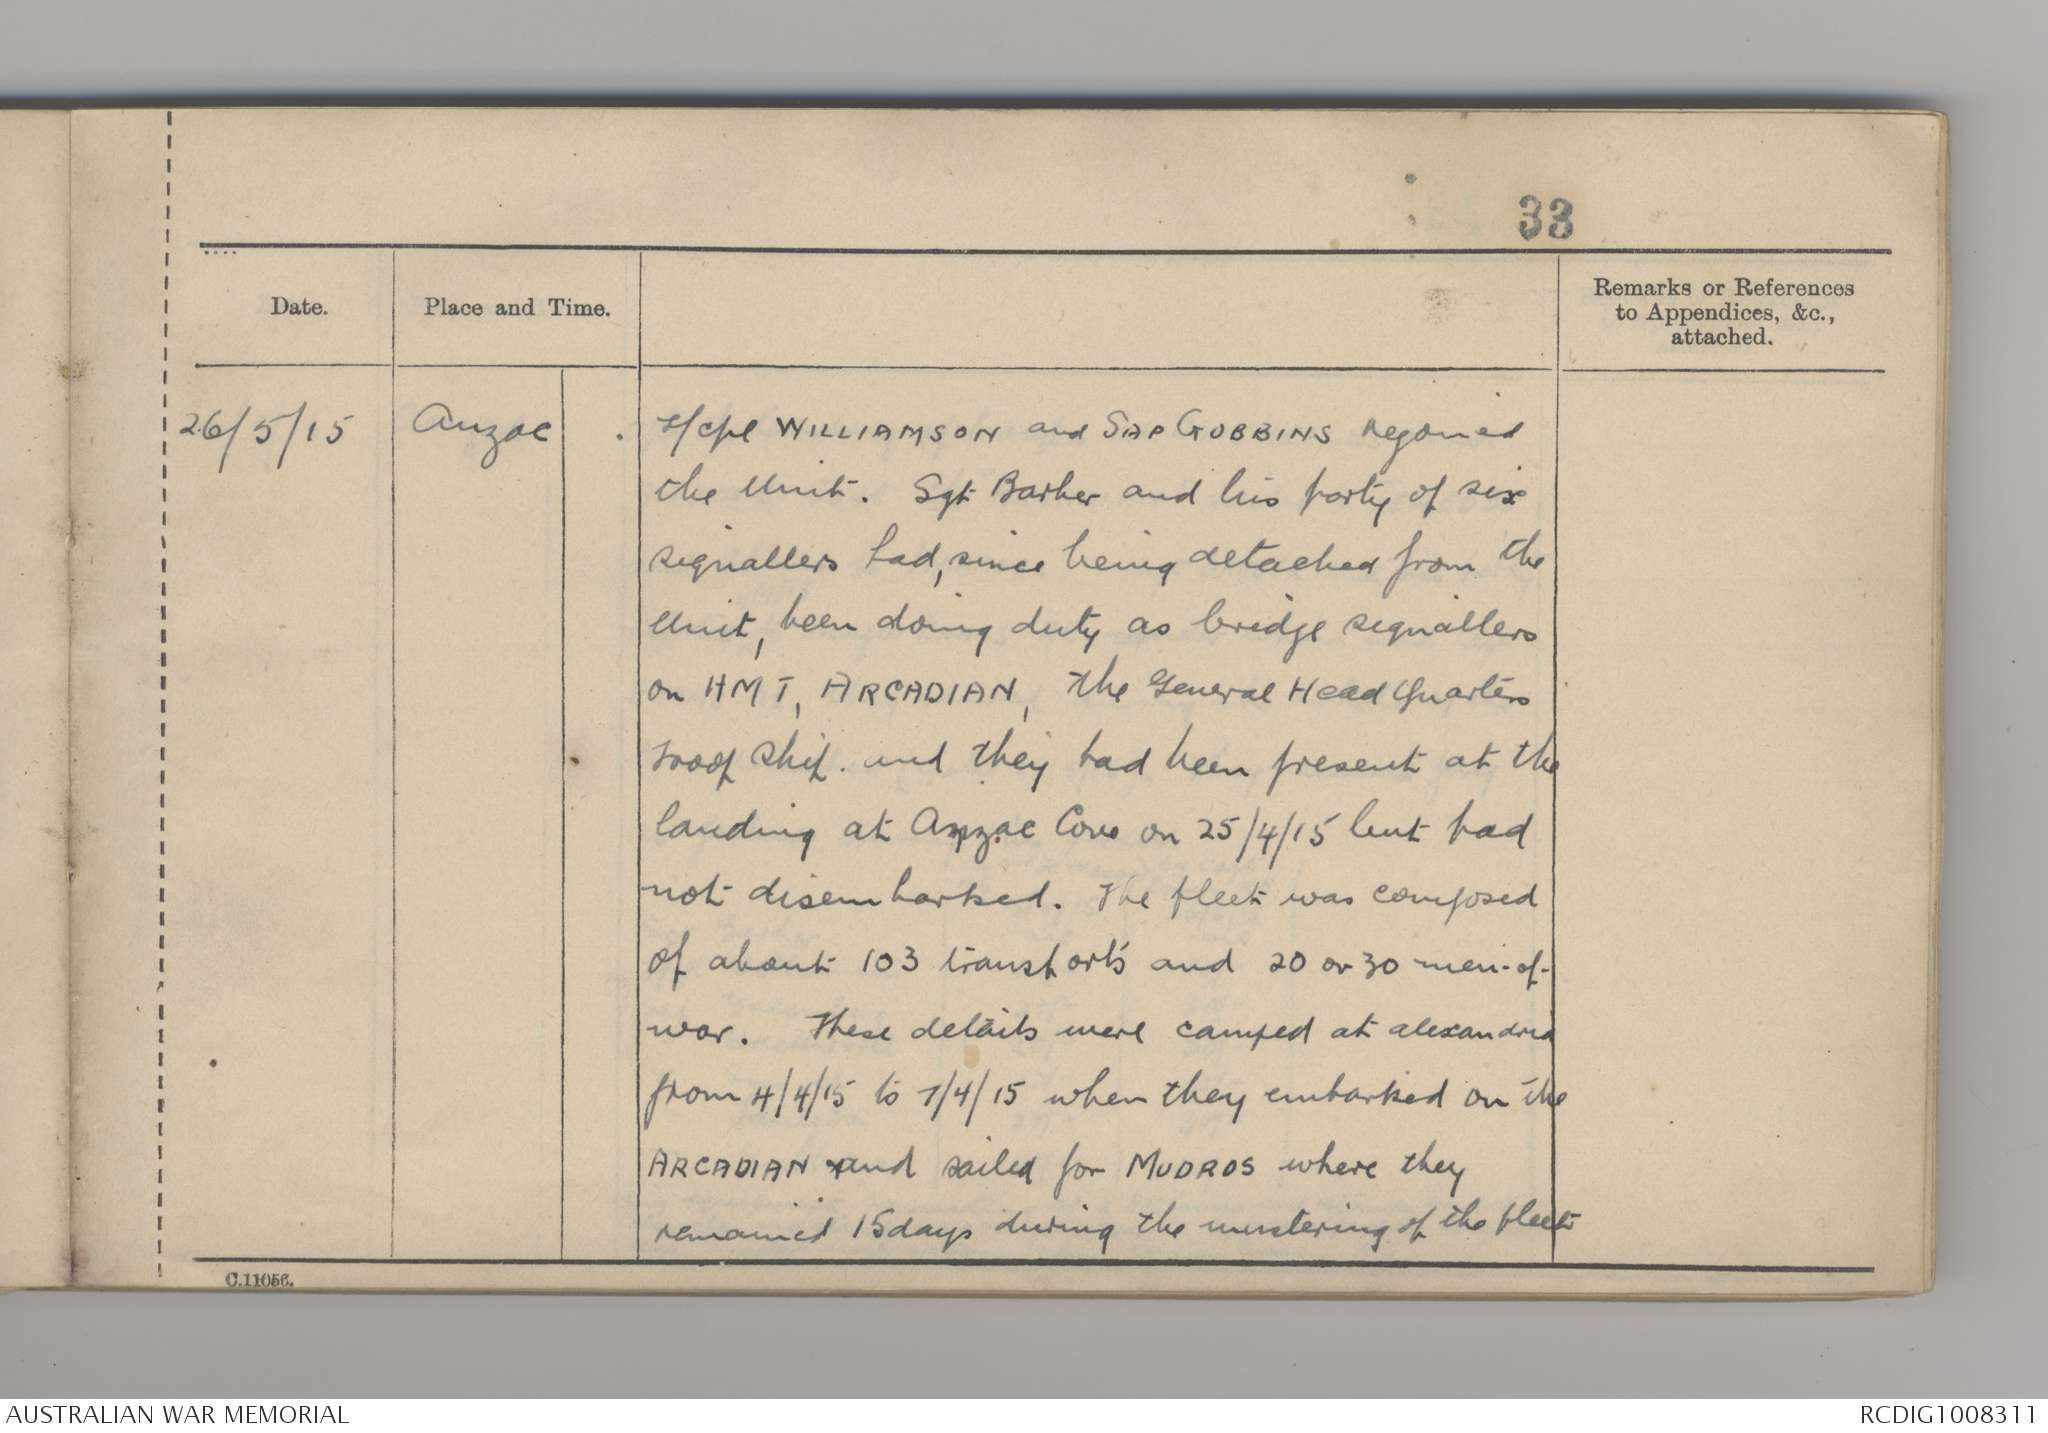 33
Date.
Place and Time.
Remarks or References
to Appendices, &c.,
attached.
26/5/15 Anzac L/Cpl WILLIAMSON and SAP GOBBINS rejoined
the Unit. Sgt Barber and his party of six
signallers had, since being detached from the
Unit, been doing duty as bridge signallers
on HMT, ARCADIAN, the General Head Quarters
troop ship. and they had been present at the
landing at Anzac Cove on 25/4/15 but had
not disembarked. The fleet was composed
of about 103 transports and 20 or 30 men-of-
war. These details were camped at alexandria
from 4/4/15 to 7/4/15 when they embarked on the
ARCADIAN and sailed for MUDROS where they
remained 15 days during the mustering of the fleet
C.11056.
AUSTRALIAN WAR MEMORIAL
RCDIG1008311